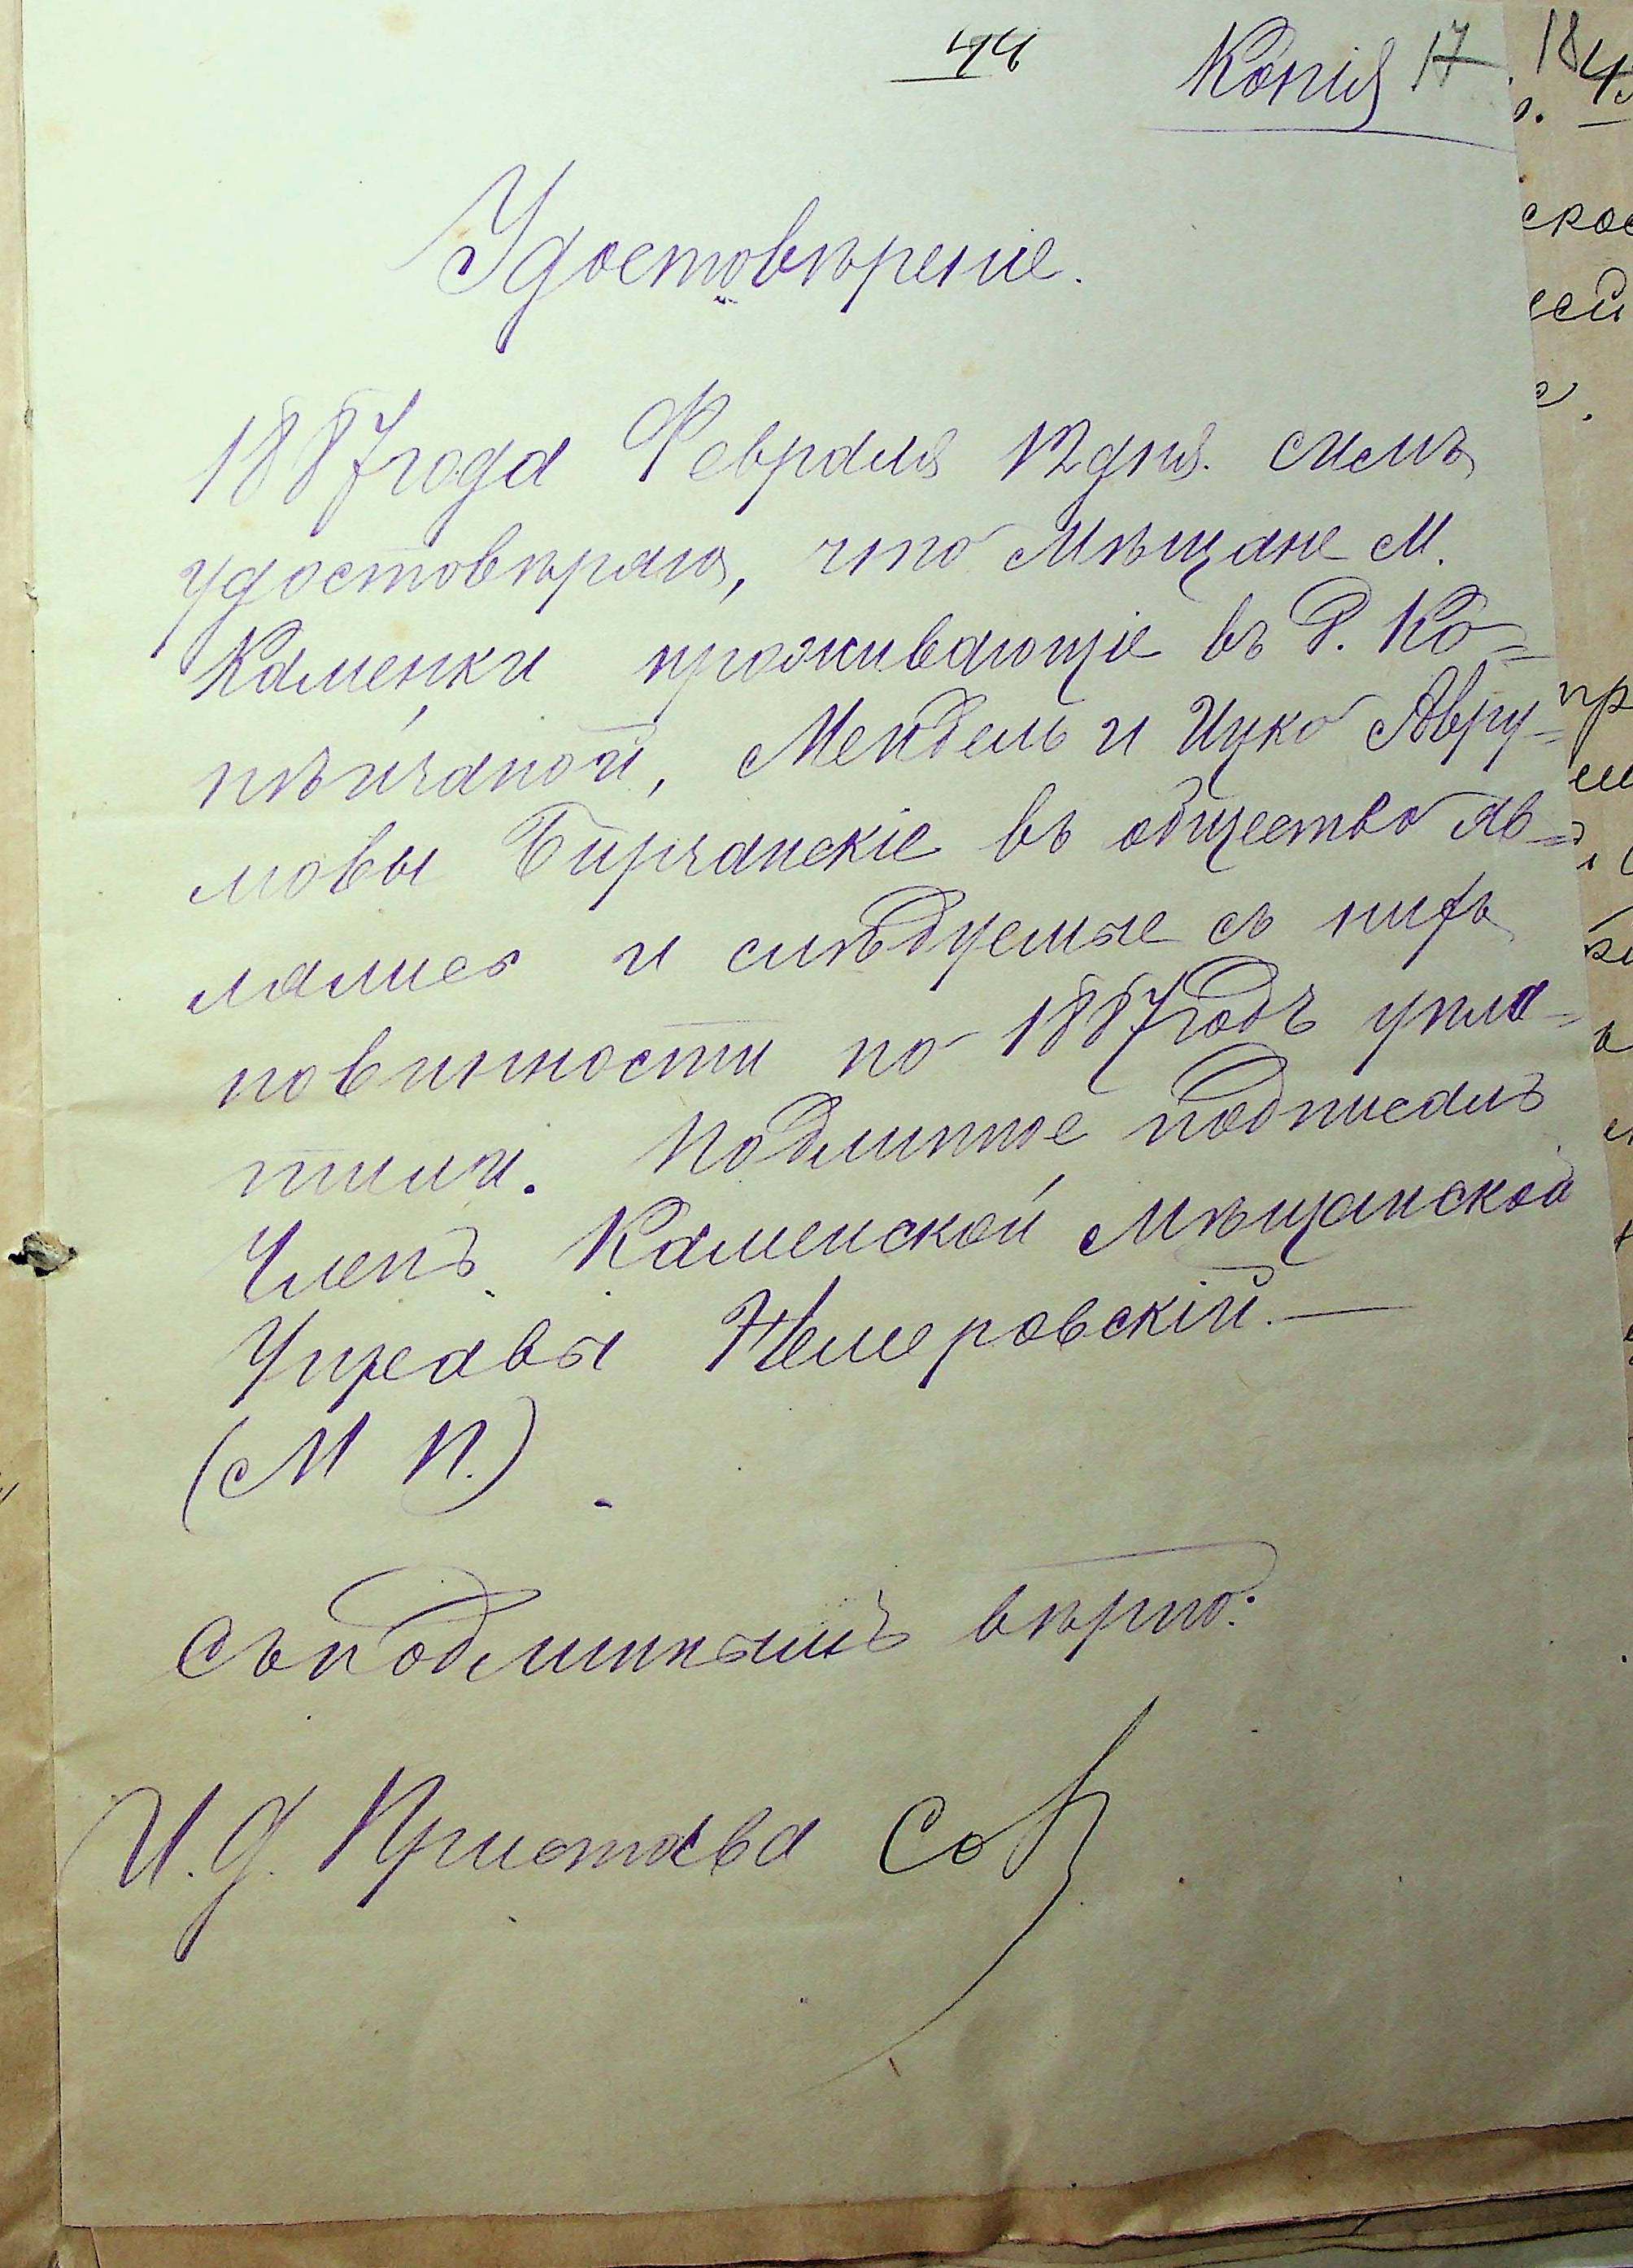 44
Копія 17
Удостовѣреніе.
1887 года Февраля 12 дня. симъ
удостовѣряю, что Мѣщане М.
Каменки проживающіе въ д. Ко=
пѣйчаной, Мендель и Ицко Авру=
мовы Бирчанскіе въ общество яв=
лялись и слѣдуемые съ нихъ
повинности по 1887 годъ упла=
тили. Подлинное подписалъ
Членъ Каменской Мѣщанской
Управы Немеровскій.—
(М П.)
Съ подлиннымъ вѣрно:
И. д. Пристава